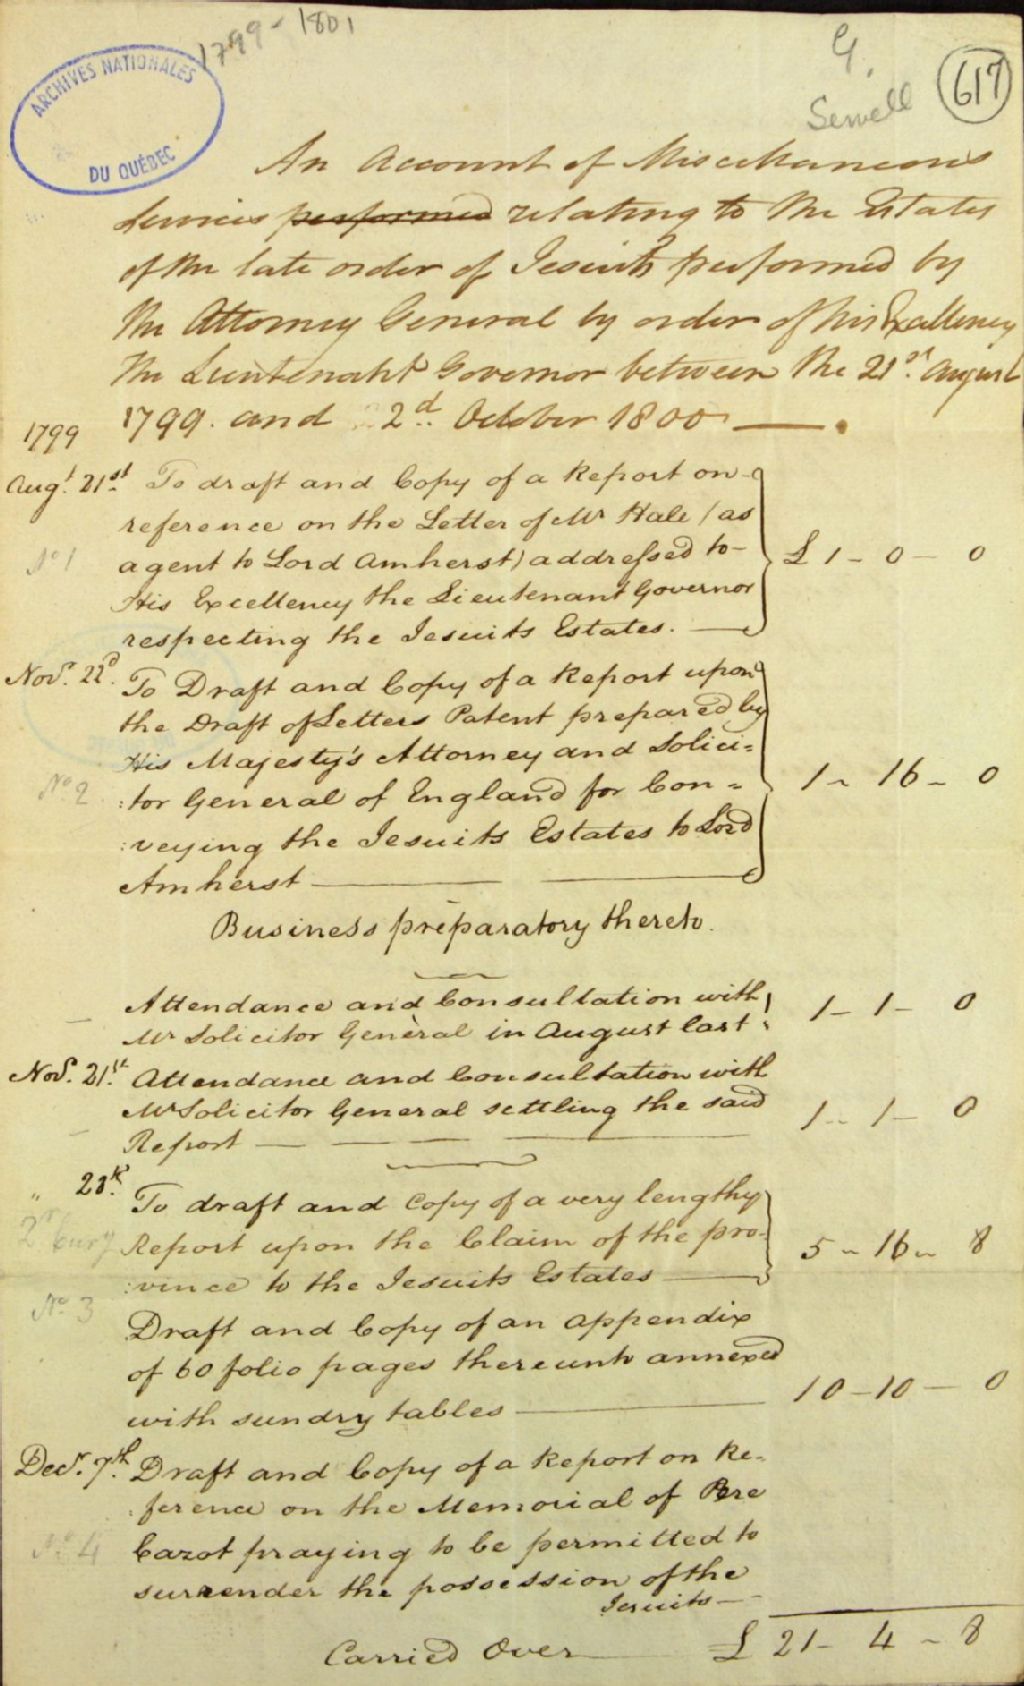 1799-1801
G.
Sewell
617
ARCHIVES NATIONALES
DU QUÉBEC
An Account of Miscellaneous
Services performed relating to the Estates
of the late order of Jesuits performed by
the Attorney General by order of his Excellency
the Lieutenant Governor between the 21st. August
1799. and 2d. October 1800 —.
1799
Augt. 21st. To draft and Copy of a Report on
reference on the Letter of Mr Hale (as
No 1 agent to Lord Amherst) addressed to £ 1 - 0 - 0
His Excellency the Lieutenant Governor
respecting the Jesuits Estates. —
Novr. 22d. To Draft and Copy of a Report upon
the Draft of Letters Patent prepared by
His Majesty's Attorney and Solici=
No 2 :tor General of England for Con= 1 - 16 - 0
:veying the Jesuits Estates to Lord
Amherst —
Business preparatory thereto.
Attendance and Consultation with
Mr Solicitor General in August last : 1 - 1 - 0
Novr. 21st. Attendance and Consultation with
Mr Solicitor General settling the said 1 - 1 - 0
Report —
" 23d. To draft and Copy of a very lengthy
Report upon the Claim of the pro- 5 - 16 - 8
:vince to the Jesuits Estates —
No 3
Draft and Copy of an appendix
of 60 folio pages thereunto annexed
with sundry tables — 10 - 10 - 0
Decr. 7th. Draft and Copy of a Report on Re-
:ference on the Memorial of Pere
No 4 Cazot praying to be permitted to
surrender the possession of the
Jesuits —
Carried Over £ 21 - 4 - 8